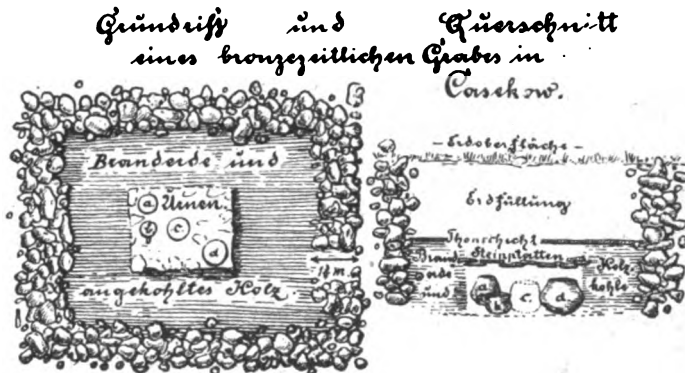 Grundriß und Querschnitt
eines bronzezeitlichen Grabes in
Casekow.
Branderde und
a Urnen
b c
d
½ m.
angekohltes Holz.
- Erdoberfläche -
Erdfüllung
Thonschicht
Steinplatten
Brand
erde
und
Holz-
kohle
a
b c. d.